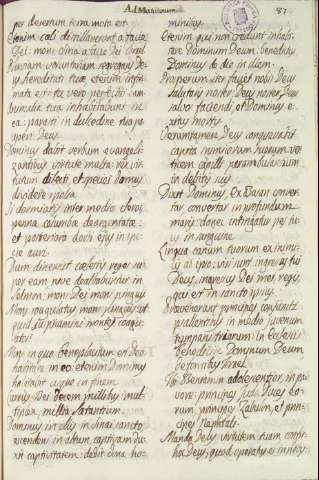 Ad Matutinum
87
per desertum terra mota est
Etenim cæli distillaverunt a facie
Dei: mons sina a facie Dei Israel
Pluviam voluntariam segregas De
us hereditati tuæ, etenim infir
mata est: tu vero perfecisti eam
Animalia tua inhabitabunt in
ea: parasti in dulcedine tua pau
peri Deus
Dominus dabit verbum evangeli
zantibus virtute multa: Rex vir
tutum dilecti, et speciei Domus
dividere spolia
Si dormiatis inter medios cleros
pennæ columbæ deargentatæ:
et posteriora dorsi ejus in spe
cie auri
Dum discernit cœlestis reges su
per eam nive dealbabuntur in
Selmon: mons Dei mons pinguis
Mons coagulatus mons pinguis: ut
quid suspicamini montes coagu
latos?
Mons in quo beneplacitum est Deo
habitare in eo: etenim Dominus
habitabit usque in finem
Currus Dei decem millibus mul
tiplex, millia lætantium
Dominus in illis in Sina in sancto
ascendens in altum cepisti cap
tivitatem: dedit dona ho
minibus.
Etenim qui non credunt inhabi
tare Dominum Deum: benedictus
Dominus de die in diem
Prosperum iter faciet nobis Deus
salutaris noster Deus noster, Deus
salvos faciendi, et Dominus e
xitus mortis
Verumtamen Deus confringet
capita inimicorum suorum ver
ticem capilli perambulantium
in delictis suis
Dixit Dominus Ex Basan conver
tar convertar in profundum
maris: donec intingatur pes tu
us in sanguine
Lingua canum tuorum ex inimi
cis ab ipso: viderunt ingressus tuos
Deus, ingressus Dei mei regis
qui est in sancto ipsius
Prævenerunt principes conjuncti
psallentes in medio juvenum
tympanistriarum: in Ecclesiis
benedicite Dominum Deum
de fontibus Israel
Ibi Beniamin adolescentior, in pa
vore: principes Juda Duces eo
rum, principes Zabulon, et prin
cipes Nephtali
Manda Deus virtutem tuam confir
ma Deus, quod operatus es in nos